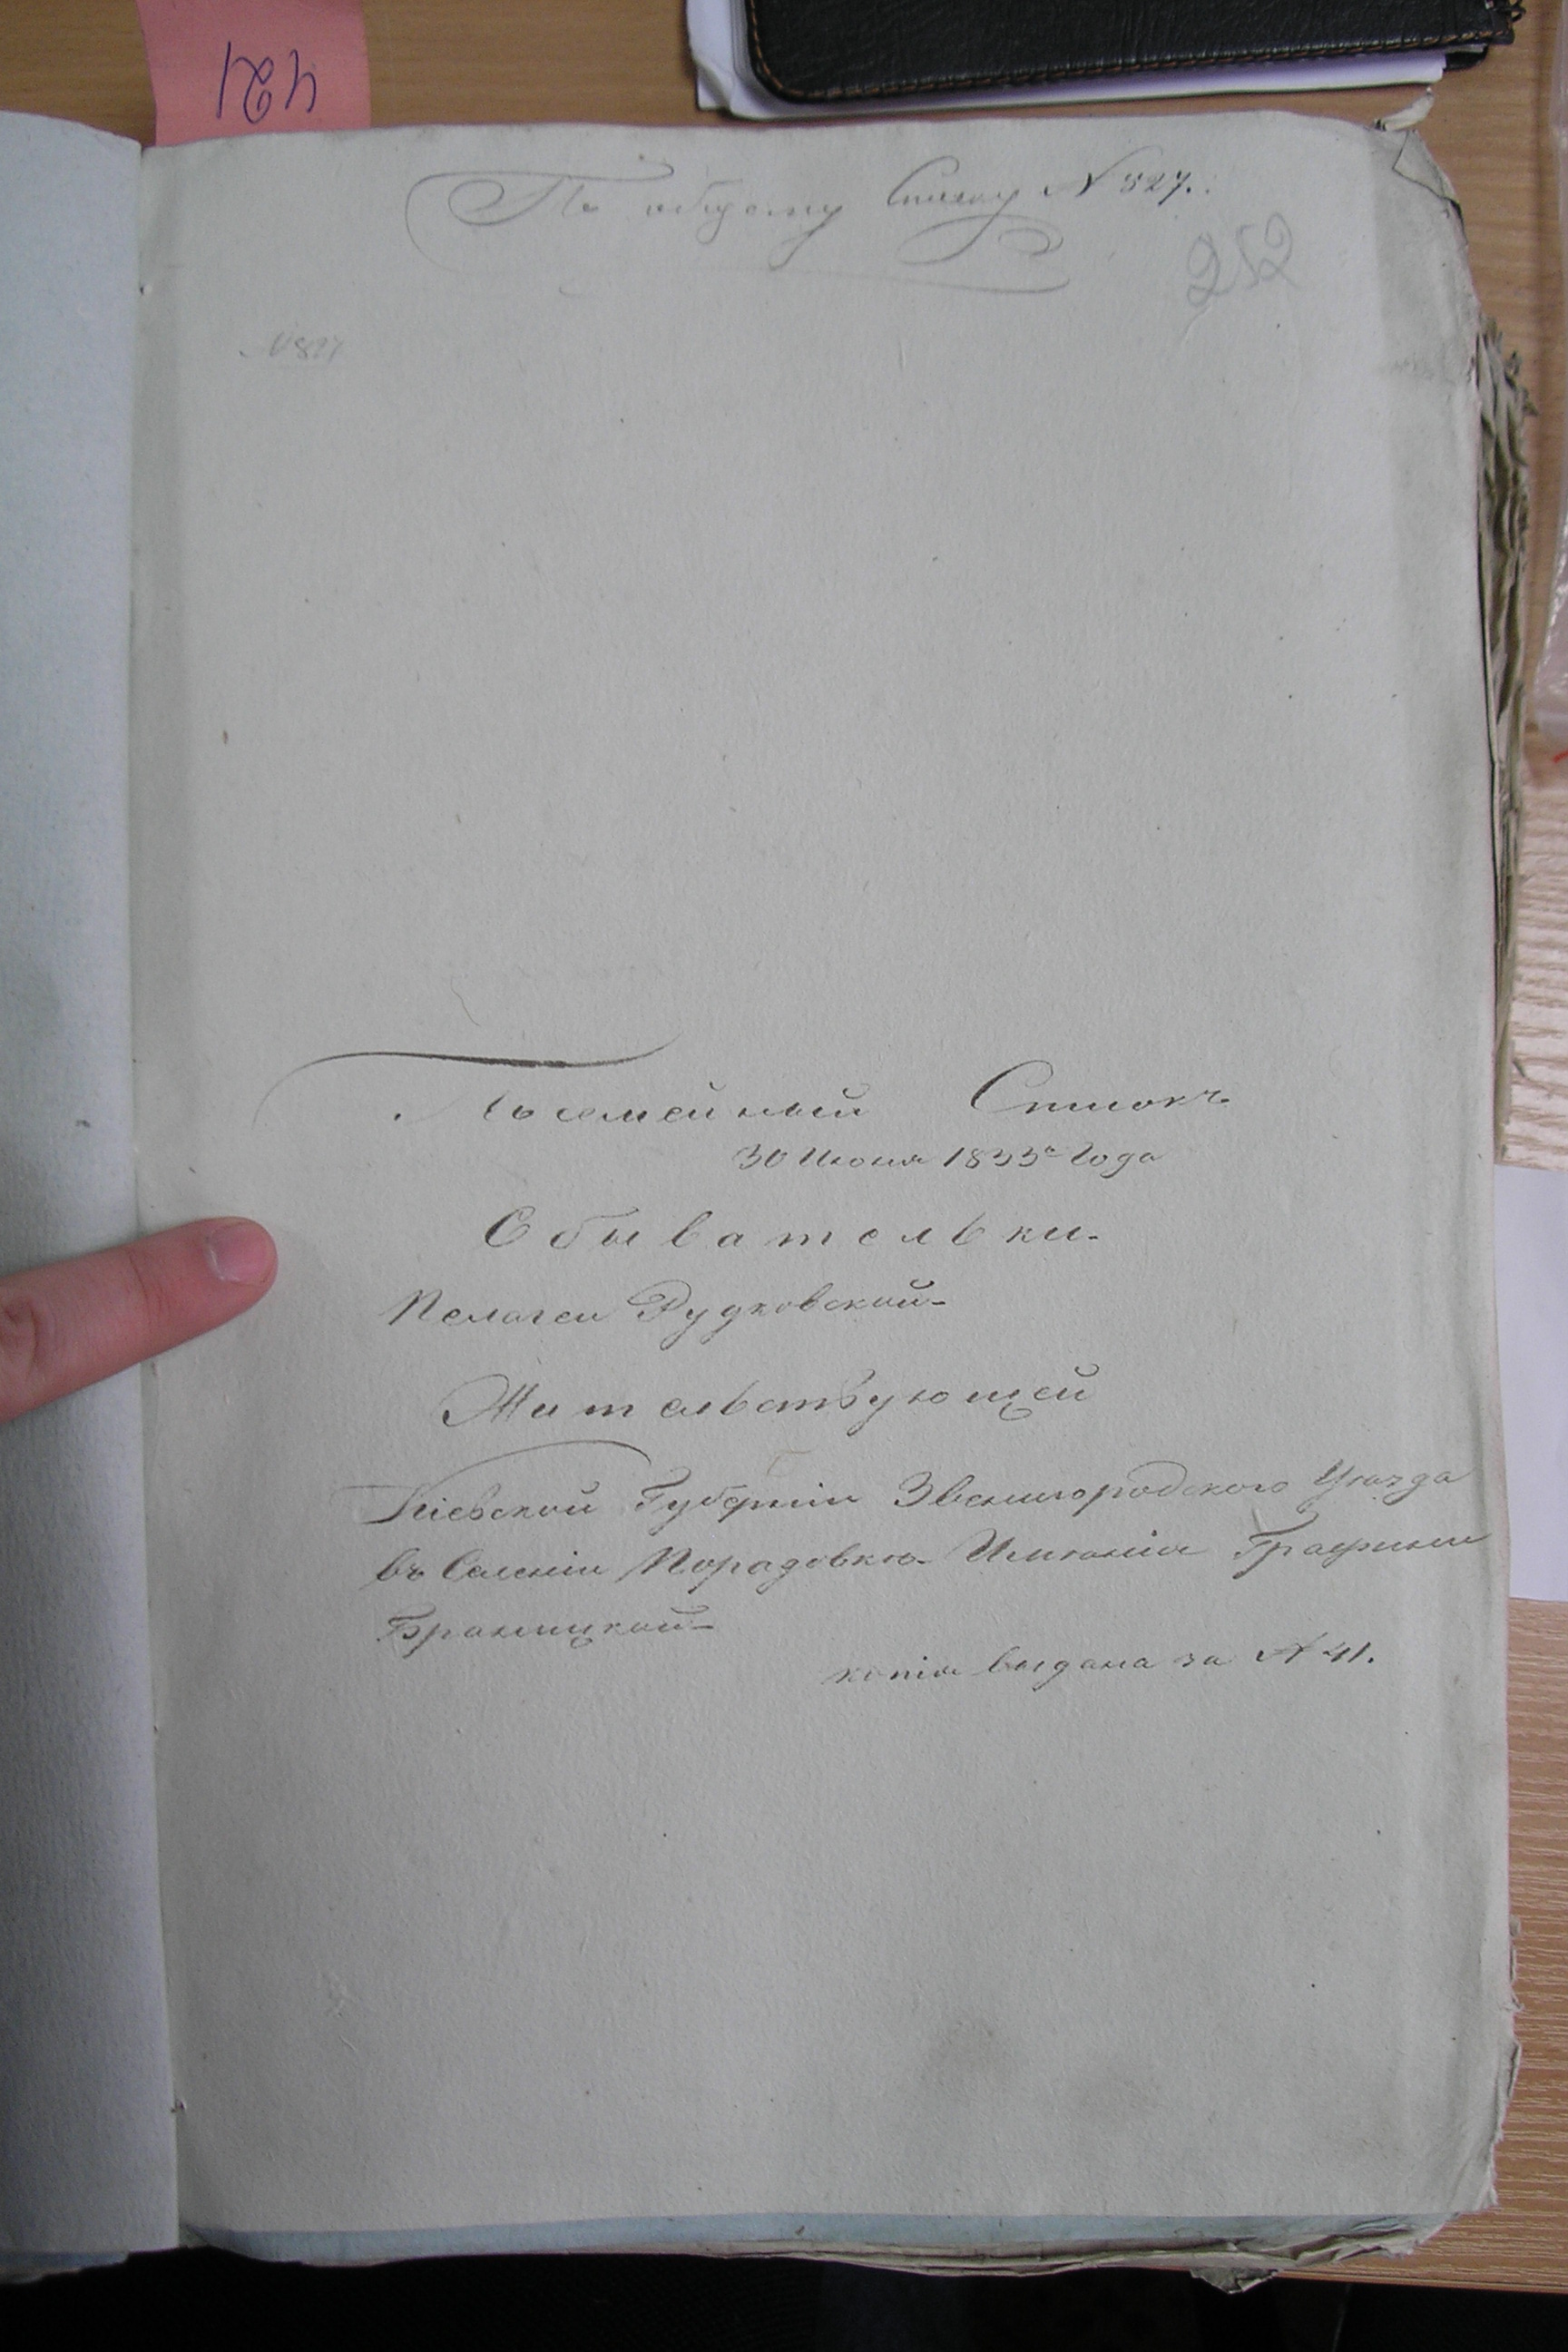 421
По общему Списку N 527.
252
N 527
Посемейный Списокъ
30 Июня 1833го Года
Обывательки
Пелагеи Рудковской
Жительствующей
Кіевской Губерніи Звенигородского Уѣзда
въ Селеніи Порадовкѣ Имѣніи Графини
Браницкой
копія выдана за N 41.